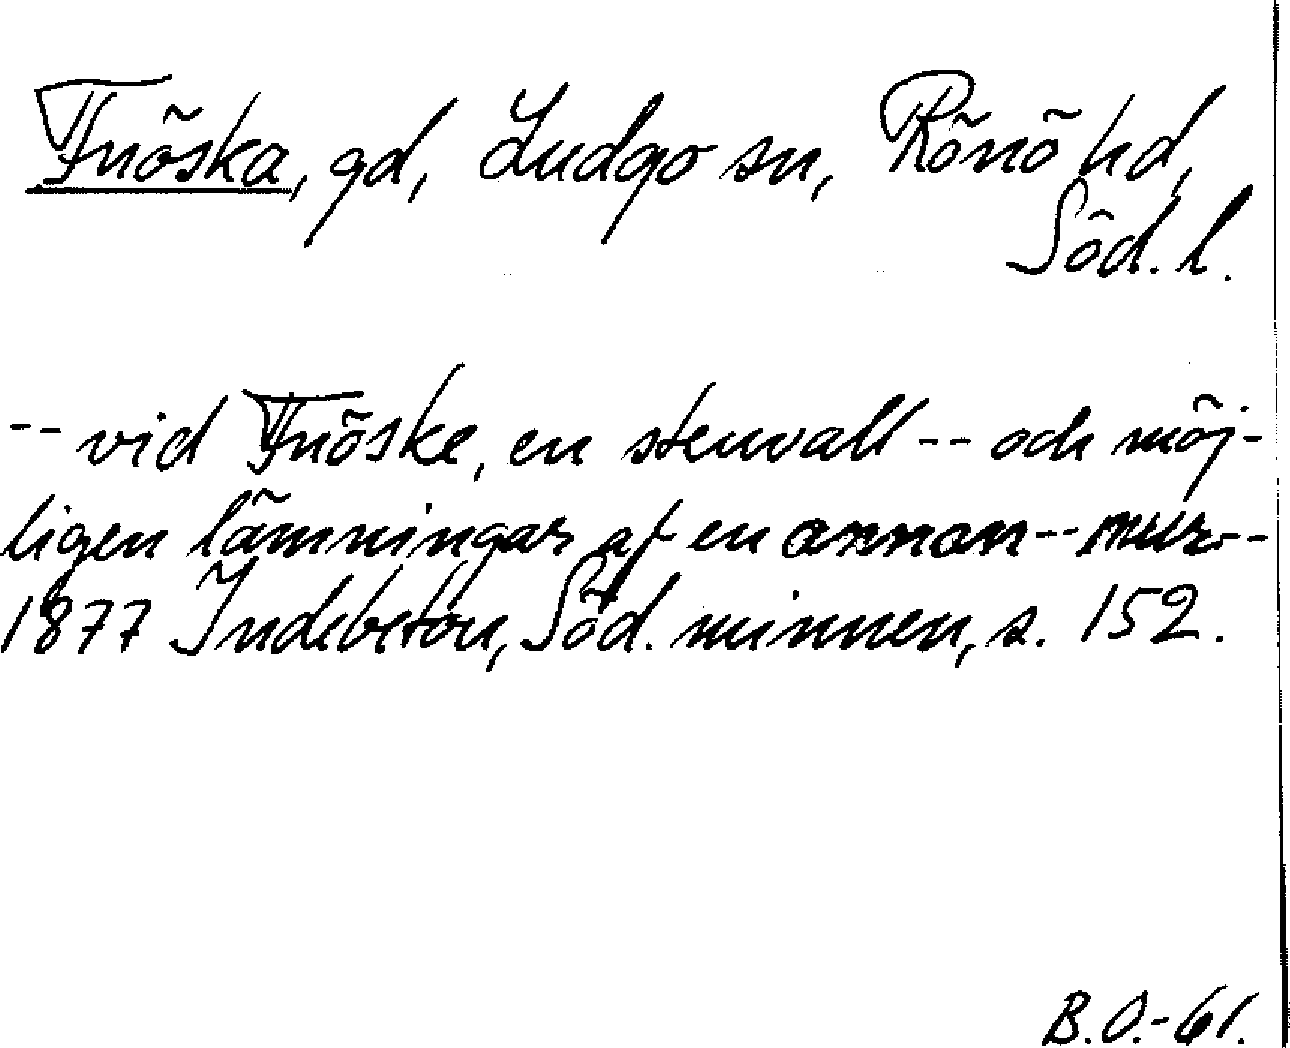 Fnöska, gd, Ludgo sn, Rönö hd,
Söd. l.
-- vid Fnöske, en stenvall -- och möj-
ligen lämningar af en annan -- mur --
1877 Indebetou, Söd. minnen, s. 152.
B.O.-61.